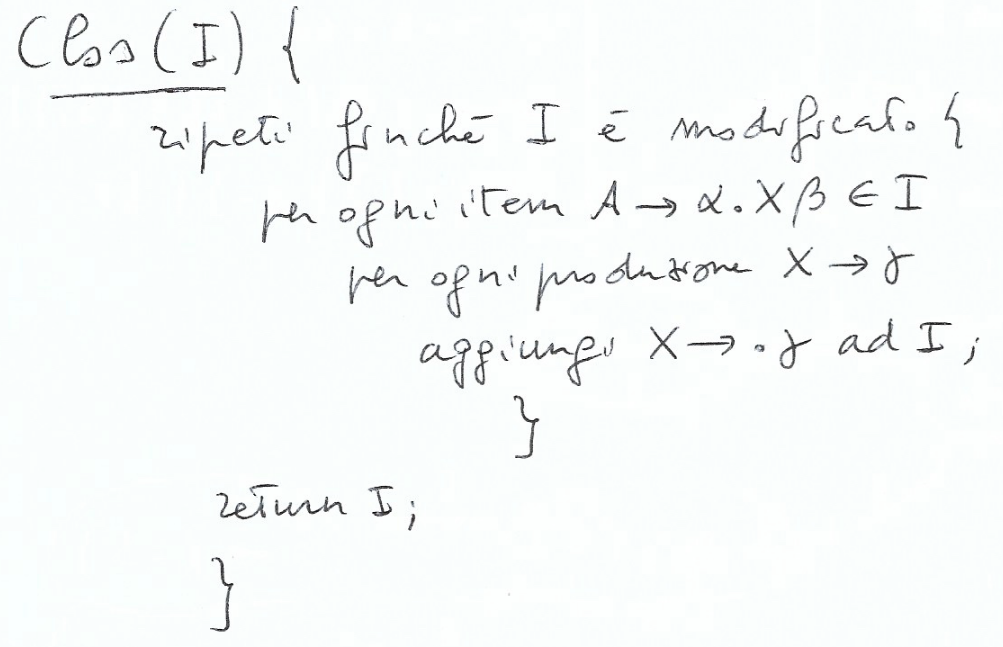 Clos(I) {
ripeti finchē I ē modificato {
per ogni item A → α.Xβ ∈ I
per ogni produzione X → γ
aggiungi X → .γ ad I;
}
return I;
}